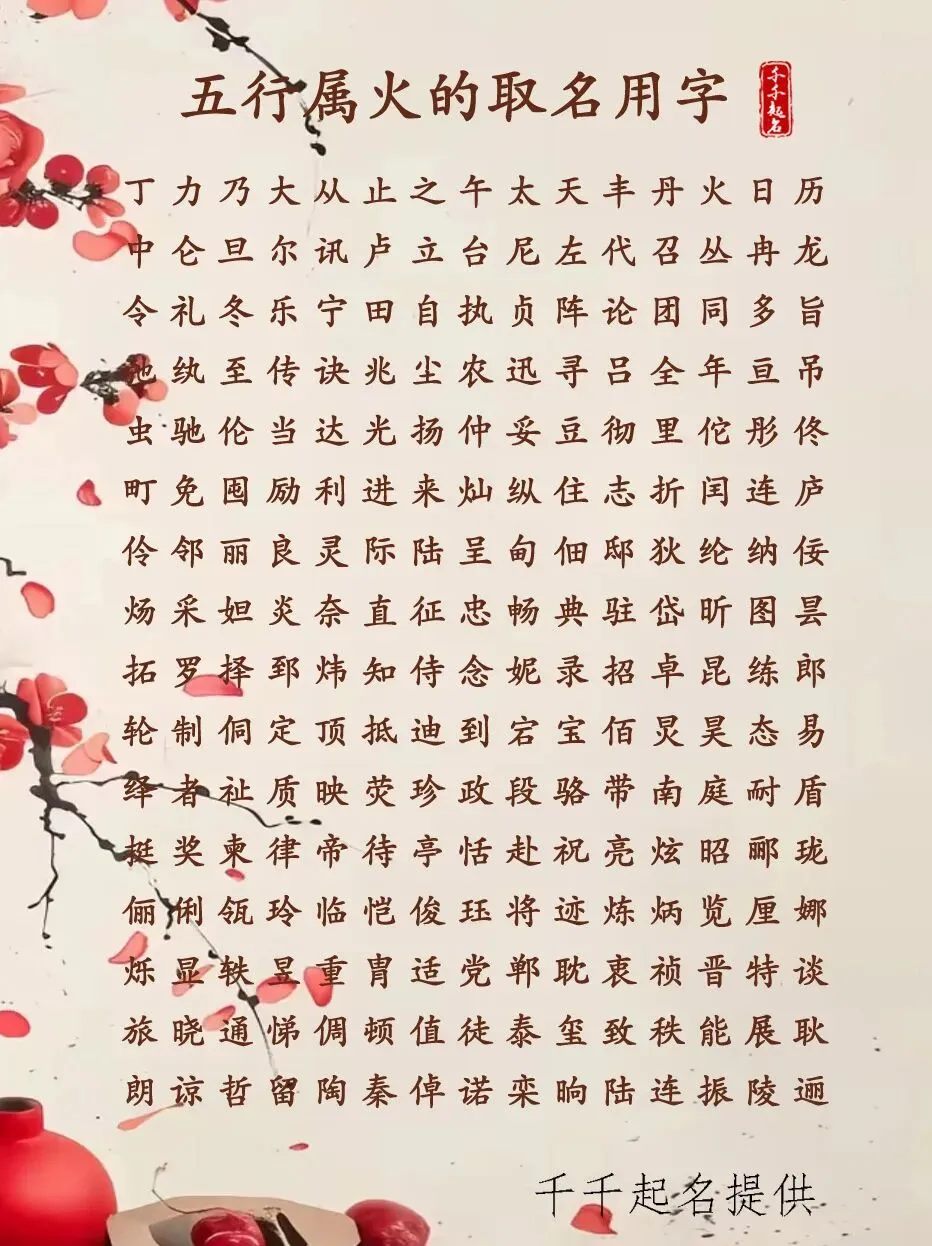 五行属火的取名用字
千千起名
丁力乃大从止之午太天丰丹火日历
中仑旦尔讯卢立台尼左代召丛冉龙
令礼冬乐宁田自执贞阵论团同多旨
弛纨至传诀兆尘农迅寻吕全年亘吊
虫驰伦当达光扬仲妥豆彻里佗彤佟
町免囤励利进来灿纵住志折闰连庐
伶邻丽良灵际陆呈甸佃邸狄纶纳佞
炀采妲炎奈直征忠畅典驻岱昕图昙
拓罗择郅炜知侍念妮录招卓昆练郎
轮制侗定顶抵迪到宕宝佰炅昊态易
绎者祉质映荧珍政段骆带南庭耐盾
挺奖柬律帝待亭恬赴祝亮炫昭郦珑
俪俐瓴玲临恺俊珏将迹炼炳览厘娜
烁显轶昱重胄适党郸耽衷祯晋特谈
旅晓通悌倜顿值徒泰玺致秩能展耿
朗谅哲留陶秦倬诺栾晌陆连振陵逦
千千起名提供